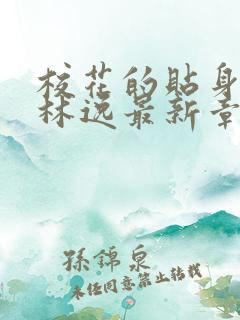 校花的贴身
林逸最新章
孫錦泉
未经同意禁止转载